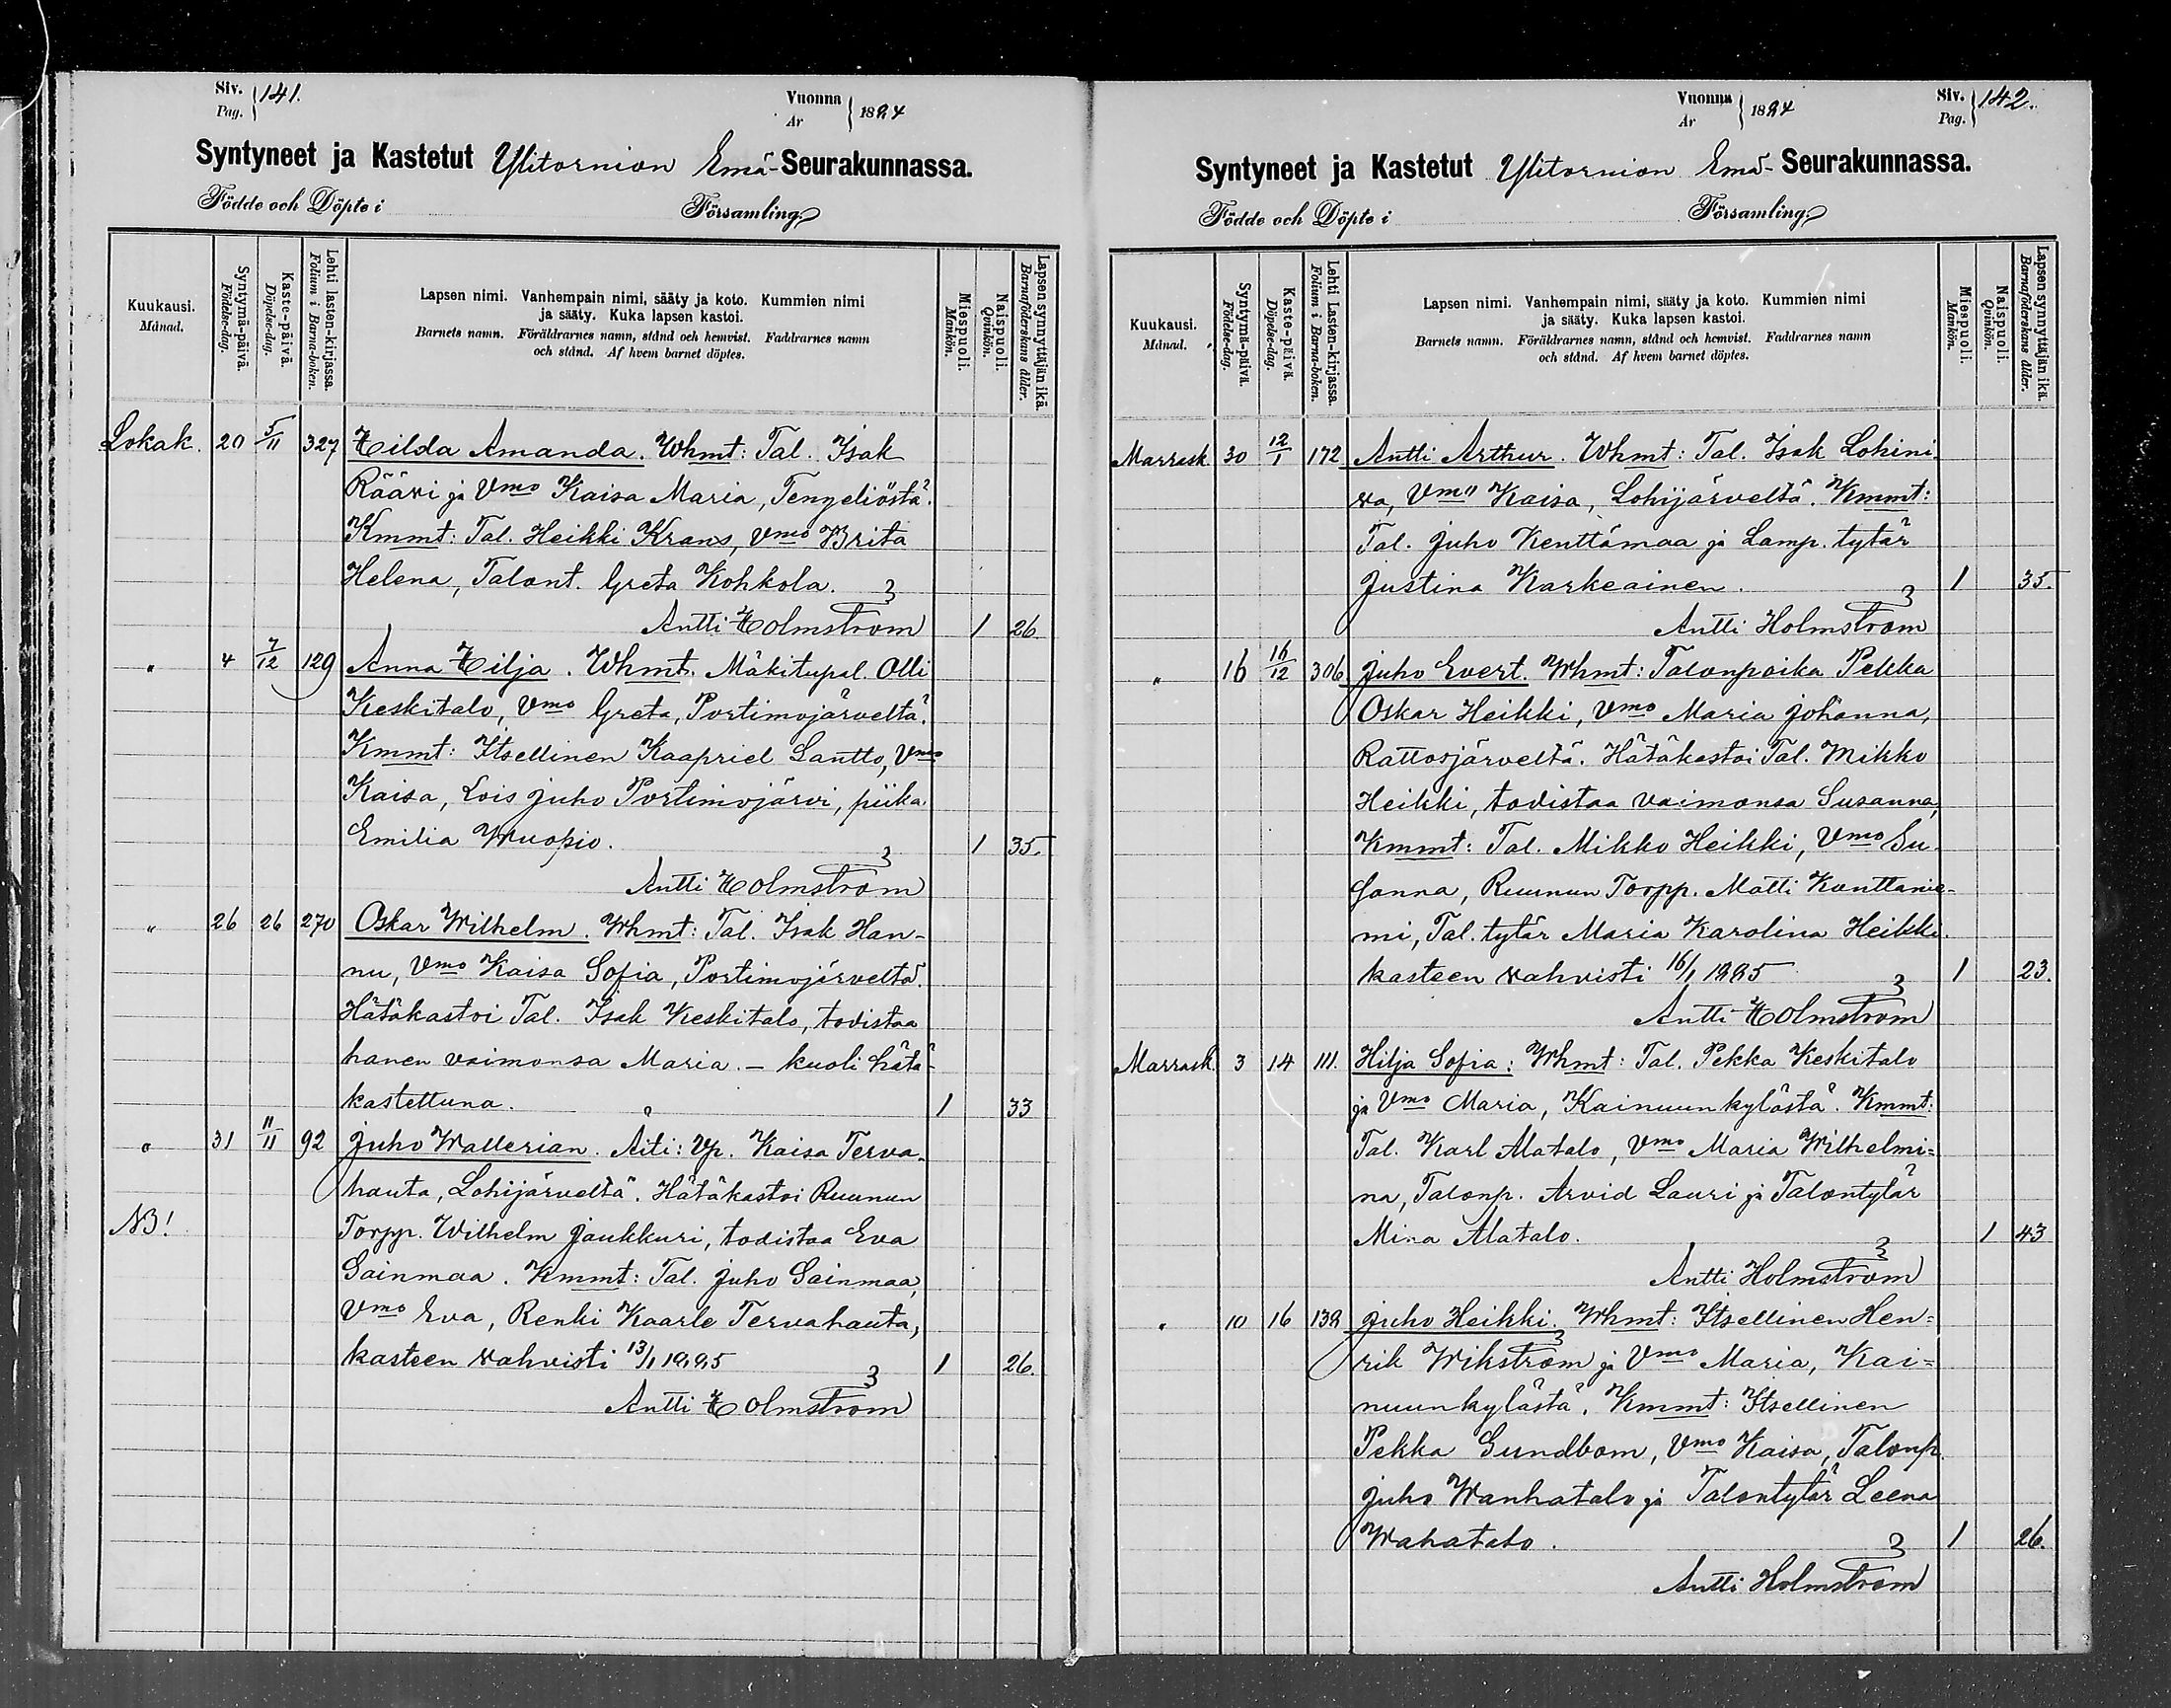 Siv. Pag. 141.
Vuonna År 1884
Syntyneet ja Kastetut Ylitornion Emä-Seurakunnassa.
Födde och Döpte i Församling.
Kuukausi. Månad.
Syntymä-päivä. Födelse-dag.
Kaste-päivä. Döpelse-dag.
Lehti lasten-kirjassa. Folium i Barna-boken.
Lapsen nimi. Vanhempain nimi, sääty ja koto. Kummien nimi
ja sääty. Kuka lapsen kastoi.
Barnets namn. Föräldrarnes namn, stånd och hemvist. Faddrarnes namn
och stånd. Af hvem barnet döptes.
Miespuoli. Mankön.
Naispuoli. Qvinkön.
Lapsen synnyttäjän ikä. Barnaföderskans ålder.
Lokak. 20 5/11 327 Hilda Amanda. Whmt: Tal. Isak
Rääri ja Vmo Kaisa Maria, Tengeliöstä.
Kmmt: Tal. Heikki Krans, Vmo Brita
Helena, Talont. Greta Kohkola.
Antti Holmström 1 26.
" 4 7/12 129 Anna Hilja. Whmt. Mäkitupal. Olli
Keskitalo, Vmo Greta, Portimojärveltä.
Kmmt: Itsellinen Kaapriel Lantto, Vmo
Kaisa, Lois Juho Portimojärvi, piika
Emilia Wuopio. 1 35.
Antti Holmström
" 26 26 270 Oskar Wilhelm. Whmt: Tal. Isak Han-
nu, Vmo Kaisa Sofia, Portimojärveltä.
Hätäkastoi Tal. Isak Keskitalo, todistaa
hanen vaimonsa Maria. - kuoli hätä-
kastettuna. 1 33
" 31 11/11 92 Juho Wallerian. Äiti: Vp. Kaisa Terva-
hauta, Lohijärveltä. Hätäkastoi Ruunun
NB! Torpp. Wilhelm Jaukkuri, todistaa Eva
Sainmaa. Kmmt: Tal. Juho Sainmaa,
Vmo Eva, Renki Kaarle Tervahauta,
kasteen vahvisti 13/1 1885 1 26.
Antti Holmström
Vuonna År 1884
Siv. Pag. 142.
Syntyneet ja Kastetut Ylitornion Emä-Seurakunnassa.
Födde och Döpte i Församling.
Kuukausi. Månad.
Syntymä-päivä. Födelse-dag.
Kaste-päivä. Döpelse-dag.
Lehti Lasten-kirjassa. Folium i Barna-boken.
Lapsen nimi. Vanhempain nimi, sääty ja koto. Kummien nimi
ja sääty. Kuka lapsen kastoi.
Barnets namn. Föräldrarnes namn, stånd och hemvist. Faddrarnes namn
och stånd. Af hvem barnet döptes.
Miespuoli. Mankön.
Naispuoli. Qvinkön.
Lapsen synnyttäjän ikä. Barnaföderskans ålder.
Marrask. 30 12/1 172 Antti Arthur. Whmt: Tal. Isak Lohini-
va, Vmo Kaisa, Lohijärveltä. Kmmt:
Tal. Juho Kenttämaa ja Lamp. tytär
Justina Karkeainen. 1 35.
Antti Holmström
" 16 16/12 306 Juho Evert. Whmt: Talonpoika Pekka
Oskar Heikki, Vmo Maria Johanna,
Rattosjärveltä. Hätäkastoi Tal. Mikko
Heikki, todistaa vaimonsa Susanna,
Kmmt: Tal. Mikko Heikki, Vmo Su-
sanna, Ruunun Torpp. Matti Kanttanie-
mi, Tal. tytär Maria Karolina Heikki.
kasteen vahvisti 16/1 1885 1 23.
Antti Holmström
Marrask. 3 14 111. Hilja Sofia: Whmt: Tal. Pekka Keskitalo
ja Vmo Maria, Kainuunkylästä. Kmmt:
Tal. Karl Alatalo, Vmo Maria Wilhelmi=
na, Talonp. Arvid Lauri ja Talontytär
Mina Alatalo. 1 43
Antti Holmström
" 10 16 138 Juho Heikki. Whmt: Itsellinen Hen=
rik Wikström ja Vmo Maria, Kai=
nuunkylästä. Kmmt: Itsellinen
Pekka Sundbom, Vmo Kaisa, Talonp.
Juho Wanhatalo ja Talontytär Leena
Wahatalo. 1 26.
Antti Holmström